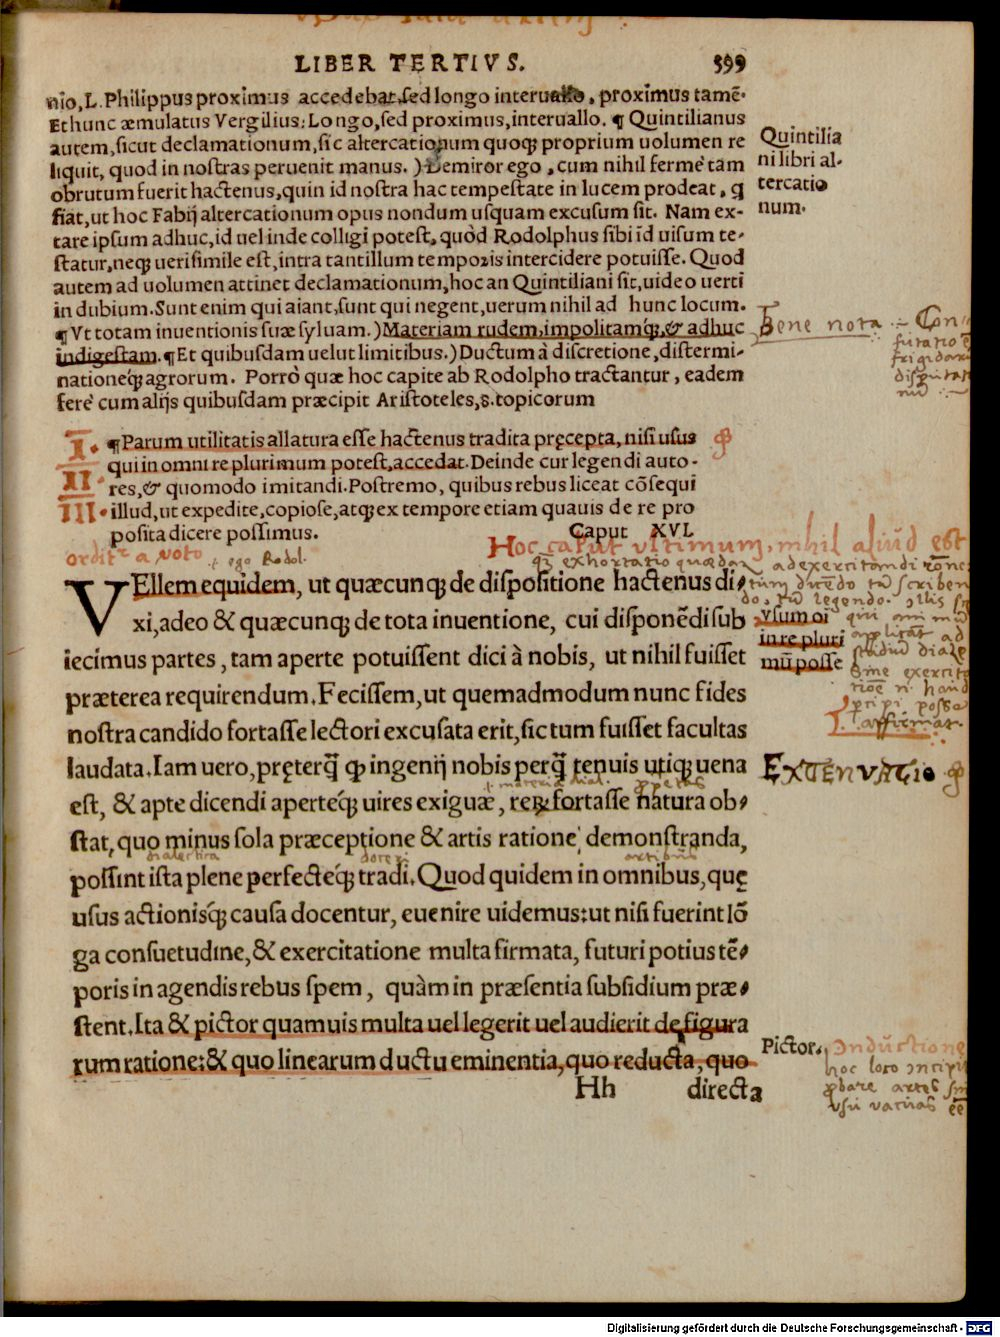 LIBER TERTIVS. 399
nio, L. Philippus proximus accedebat, sed longo interuallo, proximus tamē.
Et hunc æmulatus Vergilius: Longo, sed proximus, interuallo. ¶ Quintilianus
autem, sicut declamationum, sic altercationum quoqȝ proprium uolumen re
liquit, quod in nostras peruenit manus. ) Demiror ego, cum nihil fermè tam
obrutum fuerit hactenus, quin id nostra hac tempestate in lucem prodeat, q
fiat, ut hoc Fabij altercationum opus nondum usquam excusum sit. Nam ex-
tare ipsum adhuc, id uel inde colligi potest, quòd Rodolphus sibi id uisum te-
statur, neqȝ uerisimile est, intra tantillum temporis intercidere potuisse. Quod
autem ad uolumen attinet declamationum, hoc an Quintiliani sit, uideo uerti
in dubium. Sunt enim qui aiant, sunt qui negent, uerum nihil ad hunc locum.
¶ Vt totam inuentionis suæ syluam. ) Materiam rudem, impolitamqȝ, & adhuc
indigestam. ¶ Et quibusdam uelut limitibus. ) Ductum à discretione, distermi-
nationeqȝ agrorum. Porrò quæ hoc capite ab Rodolpho tractantur, eadem
ferè cum alijs quibusdam præcipit Aristoteles, 8. topicorum
Quintilia
ni libri al-
tercatio
num.
Bene nota
I. ¶ Parum utilitatis allatura esse hactenus tradita pręcepta, nisi usus
qui in omni re plurimum potest, accedat. Deinde cur legendi auto-
II res, & quomodo imitandi. Postremo, quibus rebus liceat cōsequi
III. illud, ut expedite, copiose, atqȝ ex tempore etiam quauis de re pro
posita dicere possimus. Caput XVI.
Hoc caput ultimum, nihil aliud est
ego Rodol.
VEllem equidem, ut quæcunqȝ de dispositione hactenus di-
xi, adeo & quæcunqȝ de tota inuentione, cui disponēdi sub
iecimus partes, tam aperte potuissent dici à nobis, ut nihil fuisset
præterea requirendum. Fecissem, ut quemadmodum nunc fides
nostra candido fortasse lectori excusata erit, sic tum fuisset facultas
laudata. Iam uero, pręterq̄ qp ingenij nobis perq̄ tenuis utiqȝ uena
est, & apte dicendi aperteqȝ uires exiguæ, reꝝ fortasse natura ob-
stat, quo minus sola præceptione & artis ratione demonstranda,
dialectica
possint ista plene perfecteqȝ tradi. Quod quidem in omnibus, quę
usus actionisqȝ causa docentur, euenire uidemus: ut nisi fuerint lō
ga consuetudine, & exercitatione multa firmata, futuri potius tē-
poris in agendis rebus spem, quàm in præsentia subsidium præ-
stent. Ita & pictor quamuis multa uel legerit uel audierit de figura
rum ratione: & quo linearum ductu eminentia, quo reducta, quo
Hh directa
vsum oī
in re pluri
mū posse
EXTENVATIO
Pictor.
Inductione
Digitalisierung gefördert durch die Deutsche Forschungsgemeinschaft - DFG